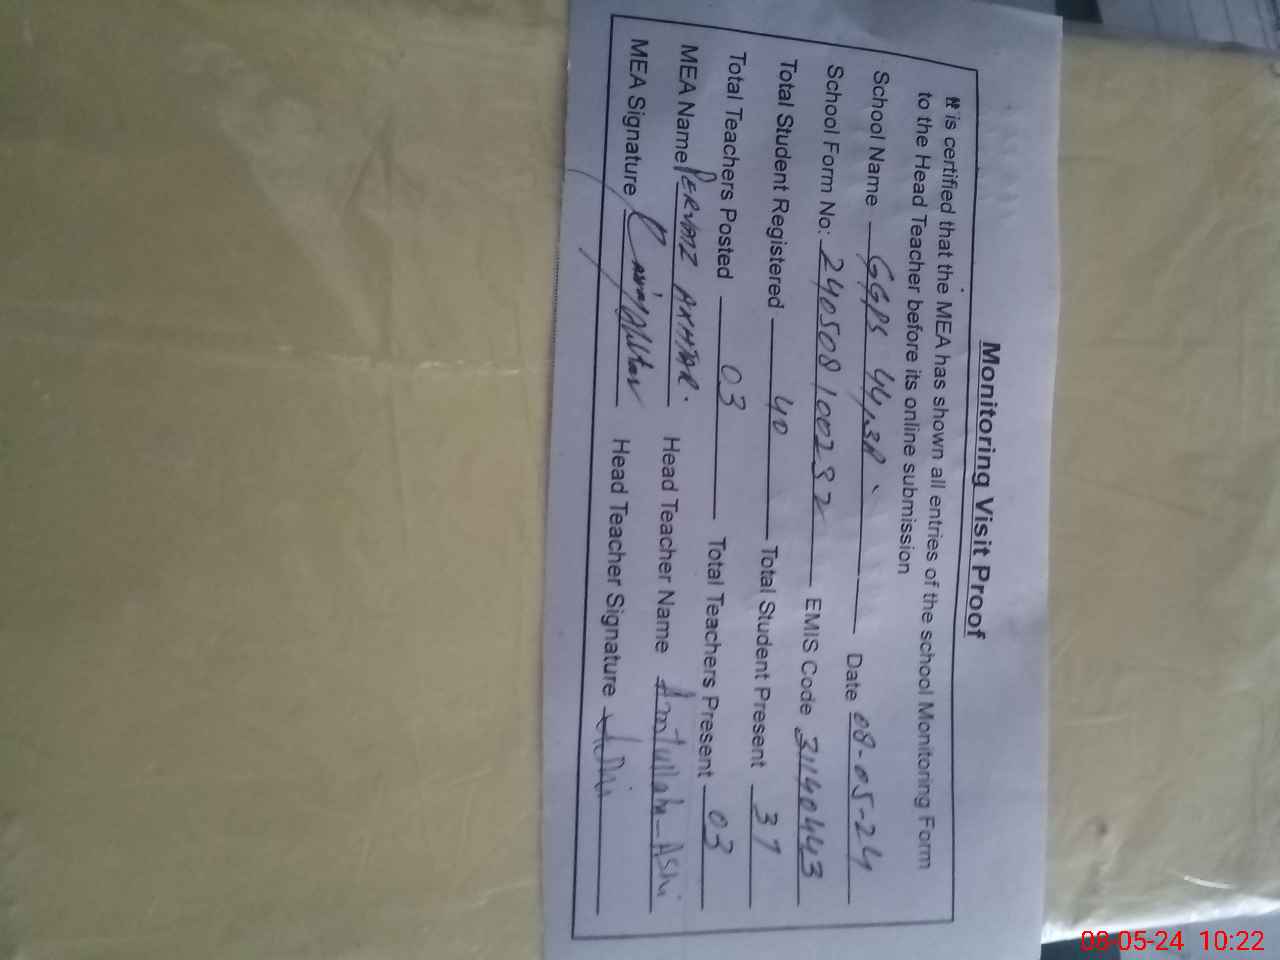 Monitoring Visit Proof
It is certified that the MEA has shown all entries of the school Monitoring Form
to the Head Teacher before its online submission
School Name GGPS 44/3R Date 08-05-24
School Form No: 240508100232 EMIS Code 31140443
Total Student Registered 40 Total Student Present 37
Total Teachers Posted 03 Total Teachers Present 03
MEA Name PERVAIZ AKHTAR. Head Teacher Name Amtullah-Ashi
MEA Signature Head Teacher Signature
08-05-24 10:22